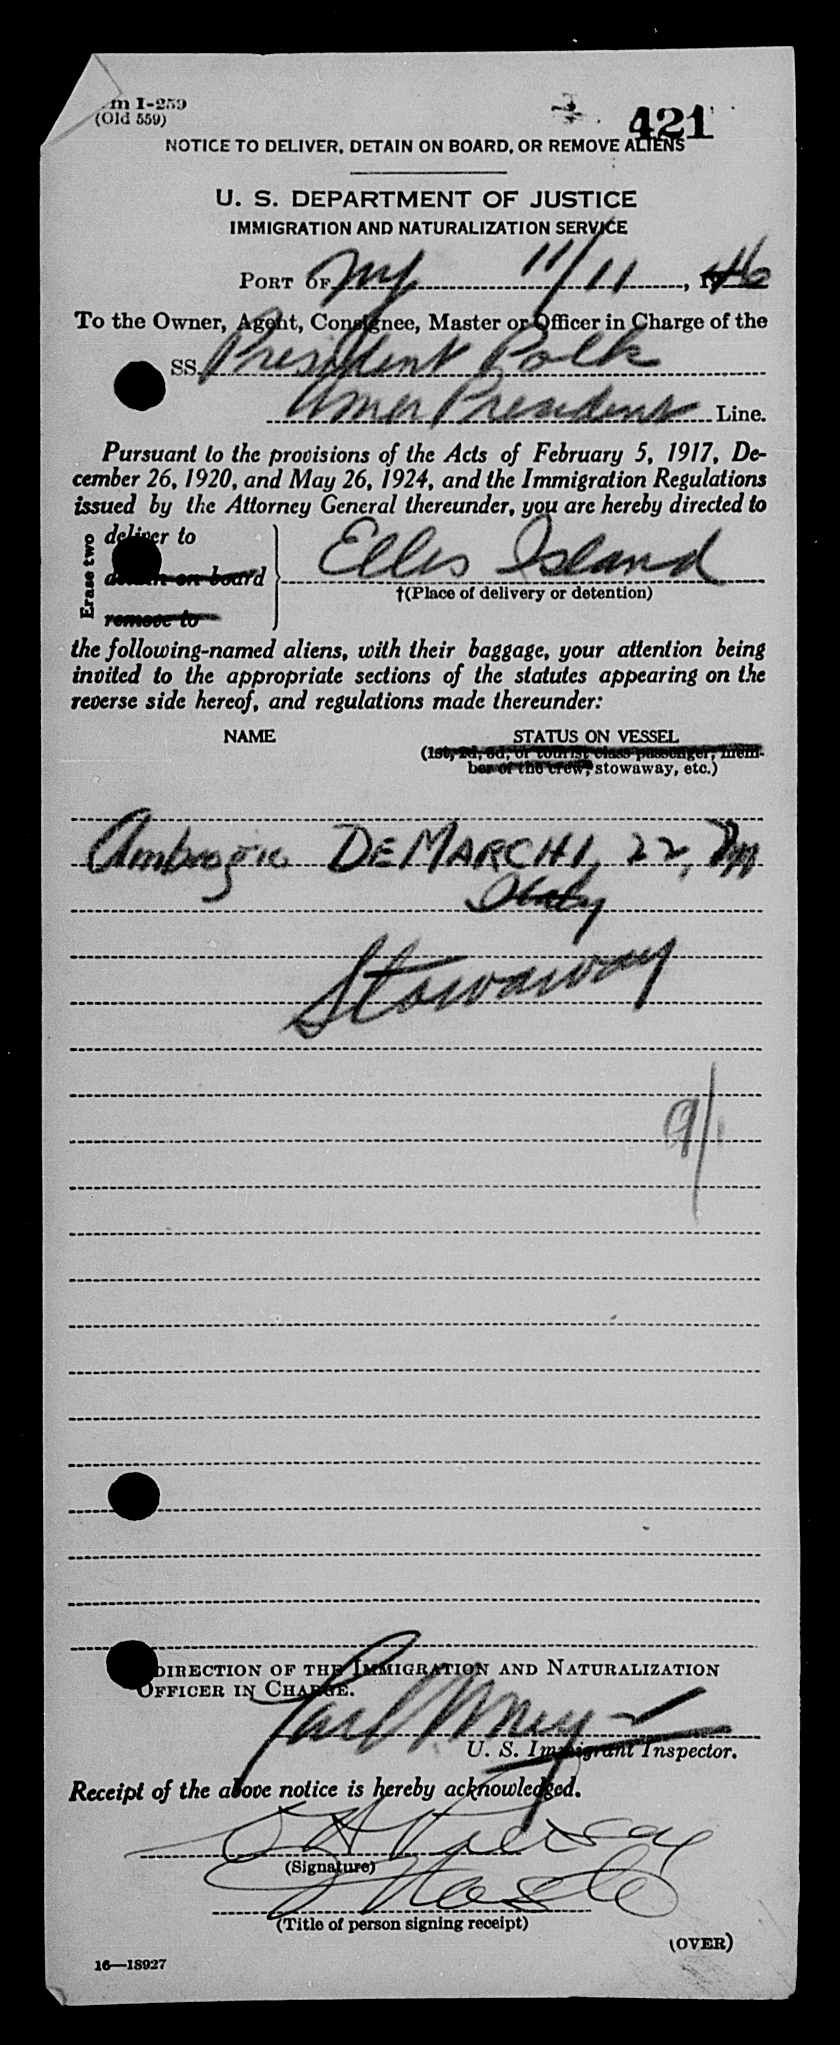 m I-259
(Old 559)
421
NOTICE TO DELIVER, DETAIN ON BOARD, OR REMOVE ALIENS
U. S. DEPARTMENT OF JUSTICE
IMMIGRATION AND NATURALIZATION SERVICE
PORT OF NY 11/11, 1946
To the Owner, Agent, Consignee, Master or Officer in Charge of the
SS. President Polk
Amer President Line.
Pursuant to the provisions of the Acts of February 5, 1917, De-
cember 26, 1920, and May 26, 1924, and the Immigration Regulations
issued by the Attorney General thereunder, you are hereby directed to
Erase two
deliver to
detain on board Ellis Island
†(Place of delivery or detention)
remove to
the following-named aliens, with their baggage, your attention being
invited to the appropriate sections of the statutes appearing on the
reverse side hereof, and regulations made thereunder:
NAME STATUS ON VESSEL
(1st, 2d, 3d, or tourist class passenger, mem-
ber of the crew, stowaway, etc.)
Ambrogio DEMARCHI, 22, m
Italy
Stowaway
9/
DIRECTION OF THE IMMIGRATION AND NATURALIZATION
OFFICER IN CHARGE.
U. S. Immigrant Inspector.
Receipt of the above notice is hereby acknowledged.
(Signature)
Master
(Title of person signing receipt)
(OVER)
16—18927